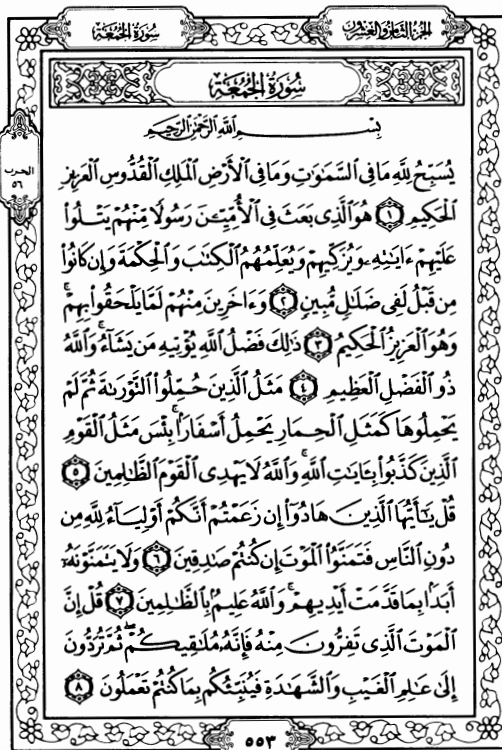 الجزء الثامن والعشرون
سورة الجمعة
سُورَةُ الجُمُعَةِ
بِسْمِ ٱللَّهِ ٱلرَّحْمَٰنِ ٱلرَّحِيمِ
يُسَبِّحُ لِلَّهِ مَا فِى ٱلسَّمَٰوَٰتِ وَمَا فِى ٱلْأَرْضِ ٱلْمَلِكِ ٱلْقُدُّوسِ ٱلْعَزِيزِ
ٱلْحَكِيمِ ١ هُوَ ٱلَّذِى بَعَثَ فِى ٱلْأُمِّيِّـۧنَ رَسُولًا مِّنْهُمْ يَتْلُوا۟
عَلَيْهِمْ ءَايَٰتِهِۦ وَيُزَكِّيهِمْ وَيُعَلِّمُهُمُ ٱلْكِتَٰبَ وَٱلْحِكْمَةَ وَإِن كَانُوا۟
مِن قَبْلُ لَفِى ضَلَٰلٍ مُّبِينٍ ٢ وَءَاخَرِينَ مِنْهُمْ لَمَّا يَلْحَقُوا۟ بِهِمْ ۚ
وَهُوَ ٱلْعَزِيزُ ٱلْحَكِيمُ ٣ ذَٰلِكَ فَضْلُ ٱللَّهِ يُؤْتِيهِ مَن يَشَآءُ ۚ وَٱللَّهُ
ذُو ٱلْفَضْلِ ٱلْعَظِيمِ ٤ مَثَلُ ٱلَّذِينَ حُمِّلُوا۟ ٱلتَّوْرَىٰةَ ثُمَّ لَمْ
يَحْمِلُوهَا كَمَثَلِ ٱلْحِمَارِ يَحْمِلُ أَسْفَارًۢا ۚ بِئْسَ مَثَلُ ٱلْقَوْمِ
ٱلَّذِينَ كَذَّبُوا۟ بِـَٔايَٰتِ ٱللَّهِ ۚ وَٱللَّهُ لَا يَهْدِى ٱلْقَوْمَ ٱلظَّٰلِمِينَ ٥
قُلْ يَٰٓأَيُّهَا ٱلَّذِينَ هَادُوٓا۟ إِن زَعَمْتُمْ أَنَّكُمْ أَوْلِيَآءُ لِلَّهِ مِن
دُونِ ٱلنَّاسِ فَتَمَنَّوُا۟ ٱلْمَوْتَ إِن كُنتُمْ صَٰدِقِينَ ٦ وَلَا يَتَمَنَّوْنَهُۥٓ
أَبَدًۢا بِمَا قَدَّمَتْ أَيْدِيهِمْ ۚ وَٱللَّهُ عَلِيمٌۢ بِٱلظَّٰلِمِينَ ٧ قُلْ إِنَّ
ٱلْمَوْتَ ٱلَّذِى تَفِرُّونَ مِنْهُ فَإِنَّهُۥ مُلَٰقِيكُمْ ۖ ثُمَّ تُرَدُّونَ
إِلَىٰ عَٰلِمِ ٱلْغَيْبِ وَٱلشَّهَٰدَةِ فَيُنَبِّئُكُم بِمَا كُنتُمْ تَعْمَلُونَ ٨
الحزب
٥٦
٥٥٣